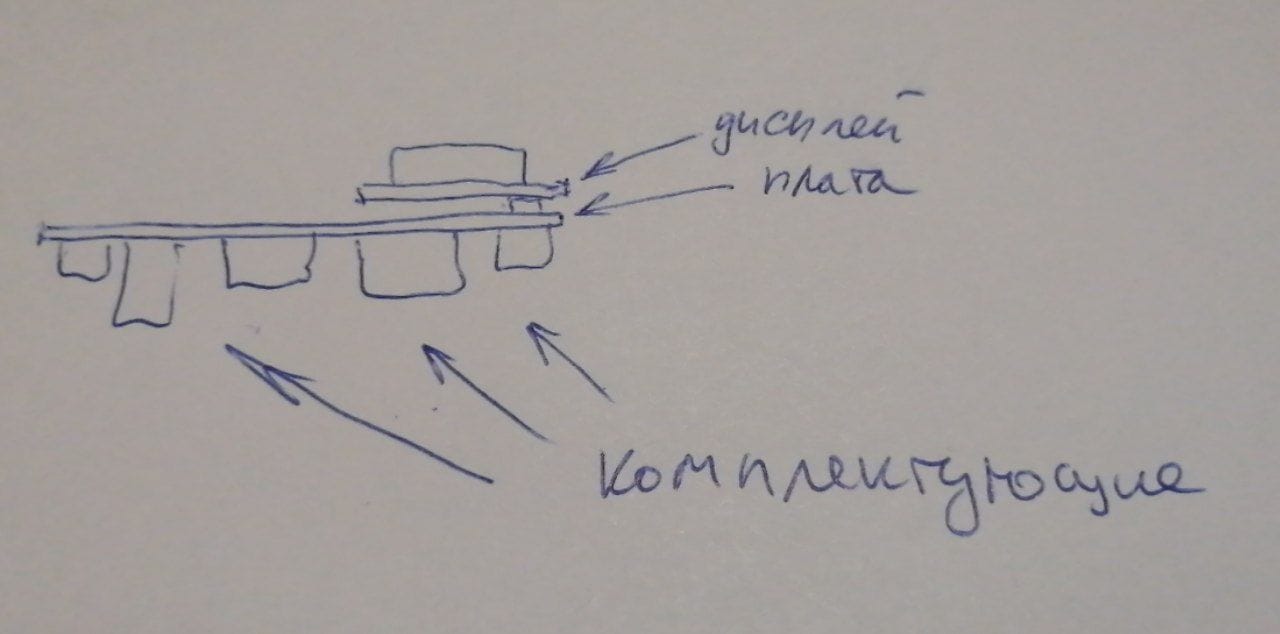 дисплей
плата
комплектующие